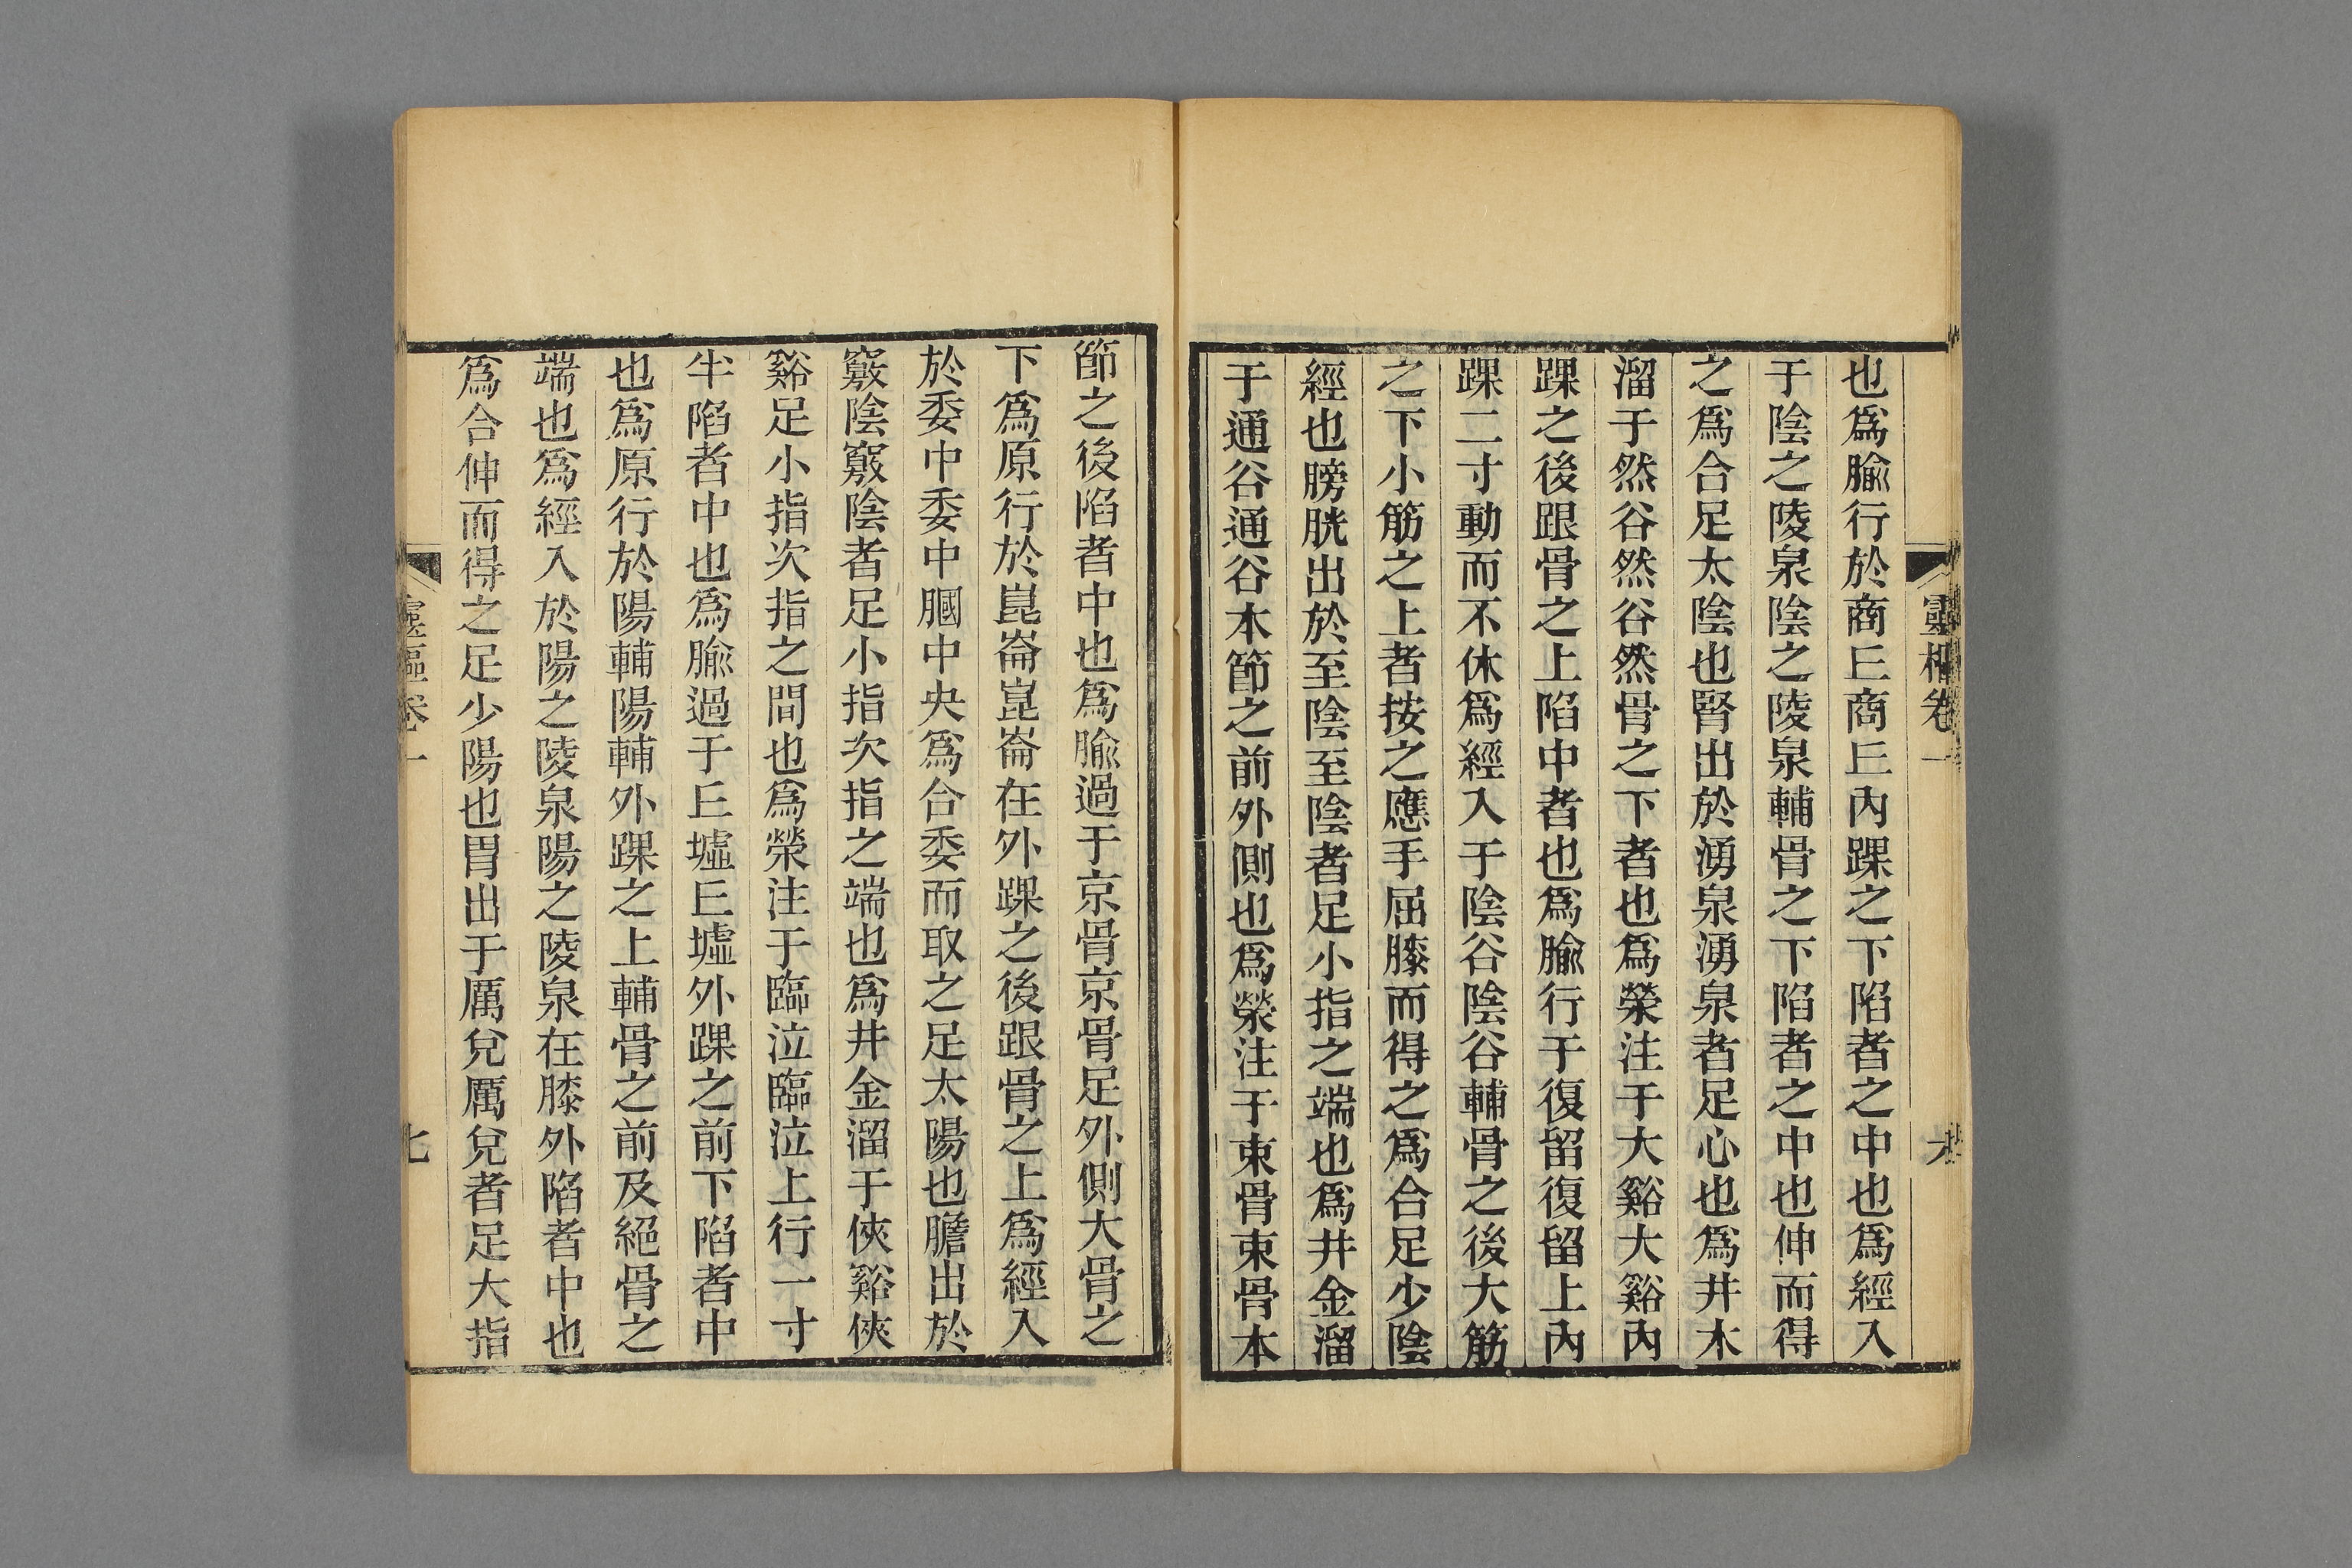 靈樞卷一
也爲腧行於商丘商丘內踝之下陷者之中也爲經入
于陰之陵泉陰之陵泉輔骨之下陷者之中也伸而得
之爲合足太陰也腎出於湧泉湧泉者足心也爲井木
溜于然谷然谷然骨之下者也爲榮注于大谿大谿內
踝之後跟骨之上陷中者也爲腧行于復留復留上內
踝二寸動而不休爲經入于陰谷陰谷輔骨之後大筋
之下小筋之上者按之應手屈膝而得之爲合足少陰
經也膀胱出於至陰至陰者足小指之端也爲井金溜
于通谷通谷本節之前外側也爲滎注于束骨束骨本
節之後陷者中也爲腧過于京骨京骨足外側大骨之
下爲原行於崑崙崑崙在外踝之後跟骨之上爲經入
於委中委中膕中央爲合委而取之足太陽也膽出於
竅陰竅陰者足小指次指之端也爲井金溜于俠谿俠
谿足小指次指之間也爲榮注于臨泣臨泣上行一寸
半陷者中也爲腧過于丘墟丘墟外踝之前下陷者中
也爲原行於陽輔陽輔外踝之上輔骨之前及絕骨之
端也爲經入於陽之陵泉陽之陵泉在膝外陷者中也
爲合伸而得之足少陽也胃出于厲兌厲兌者足大指
靈樞卷一
七